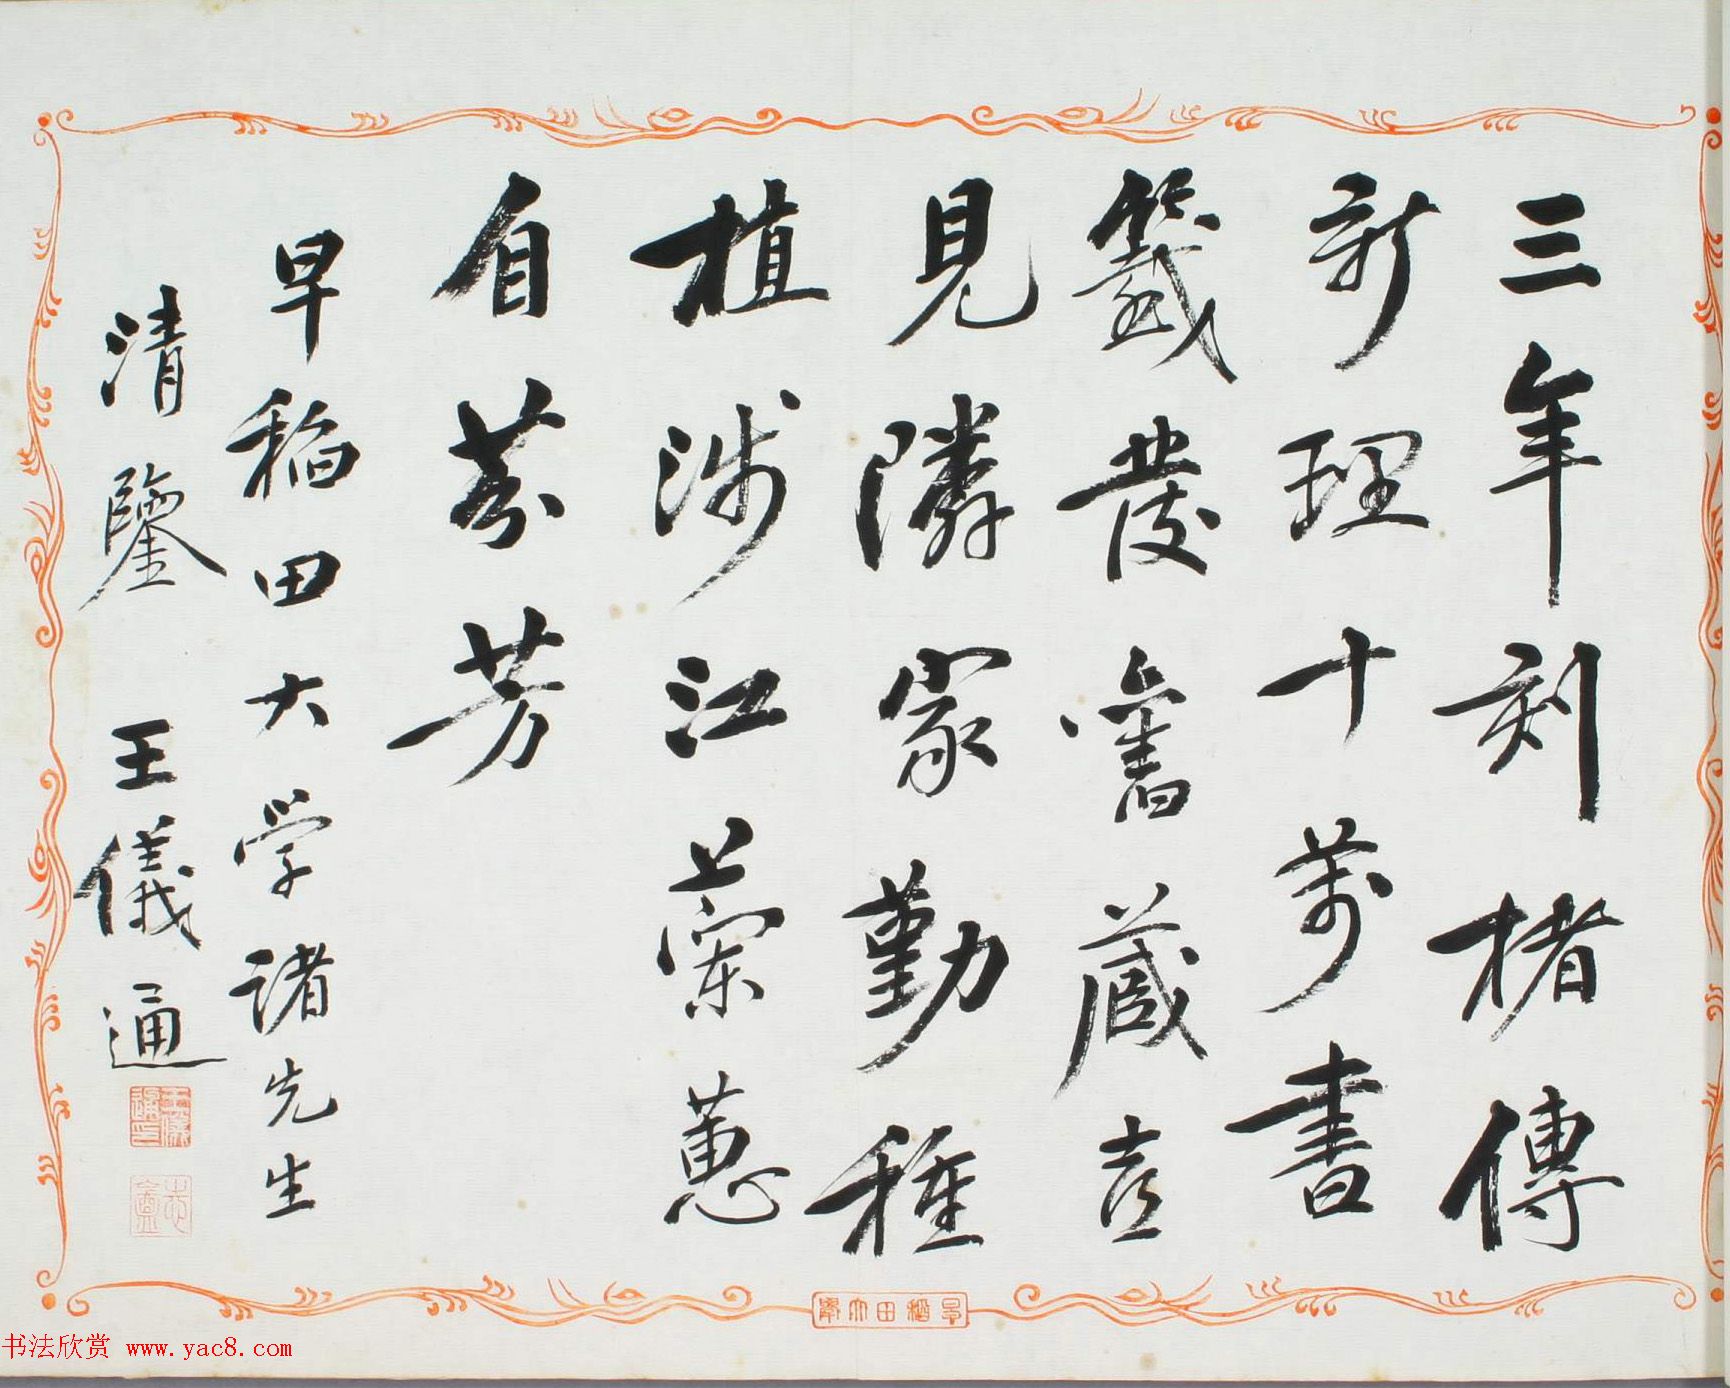 三年刻楮傳
新理十萬書
籤發舊藏喜
見隣家勤種
植涉江蘭蕙
自芬芳
早稻田大学諸先生
清鑒 王儀通
王儀通印
志盦
早稻田大學
书法欣赏 www.yac8.com